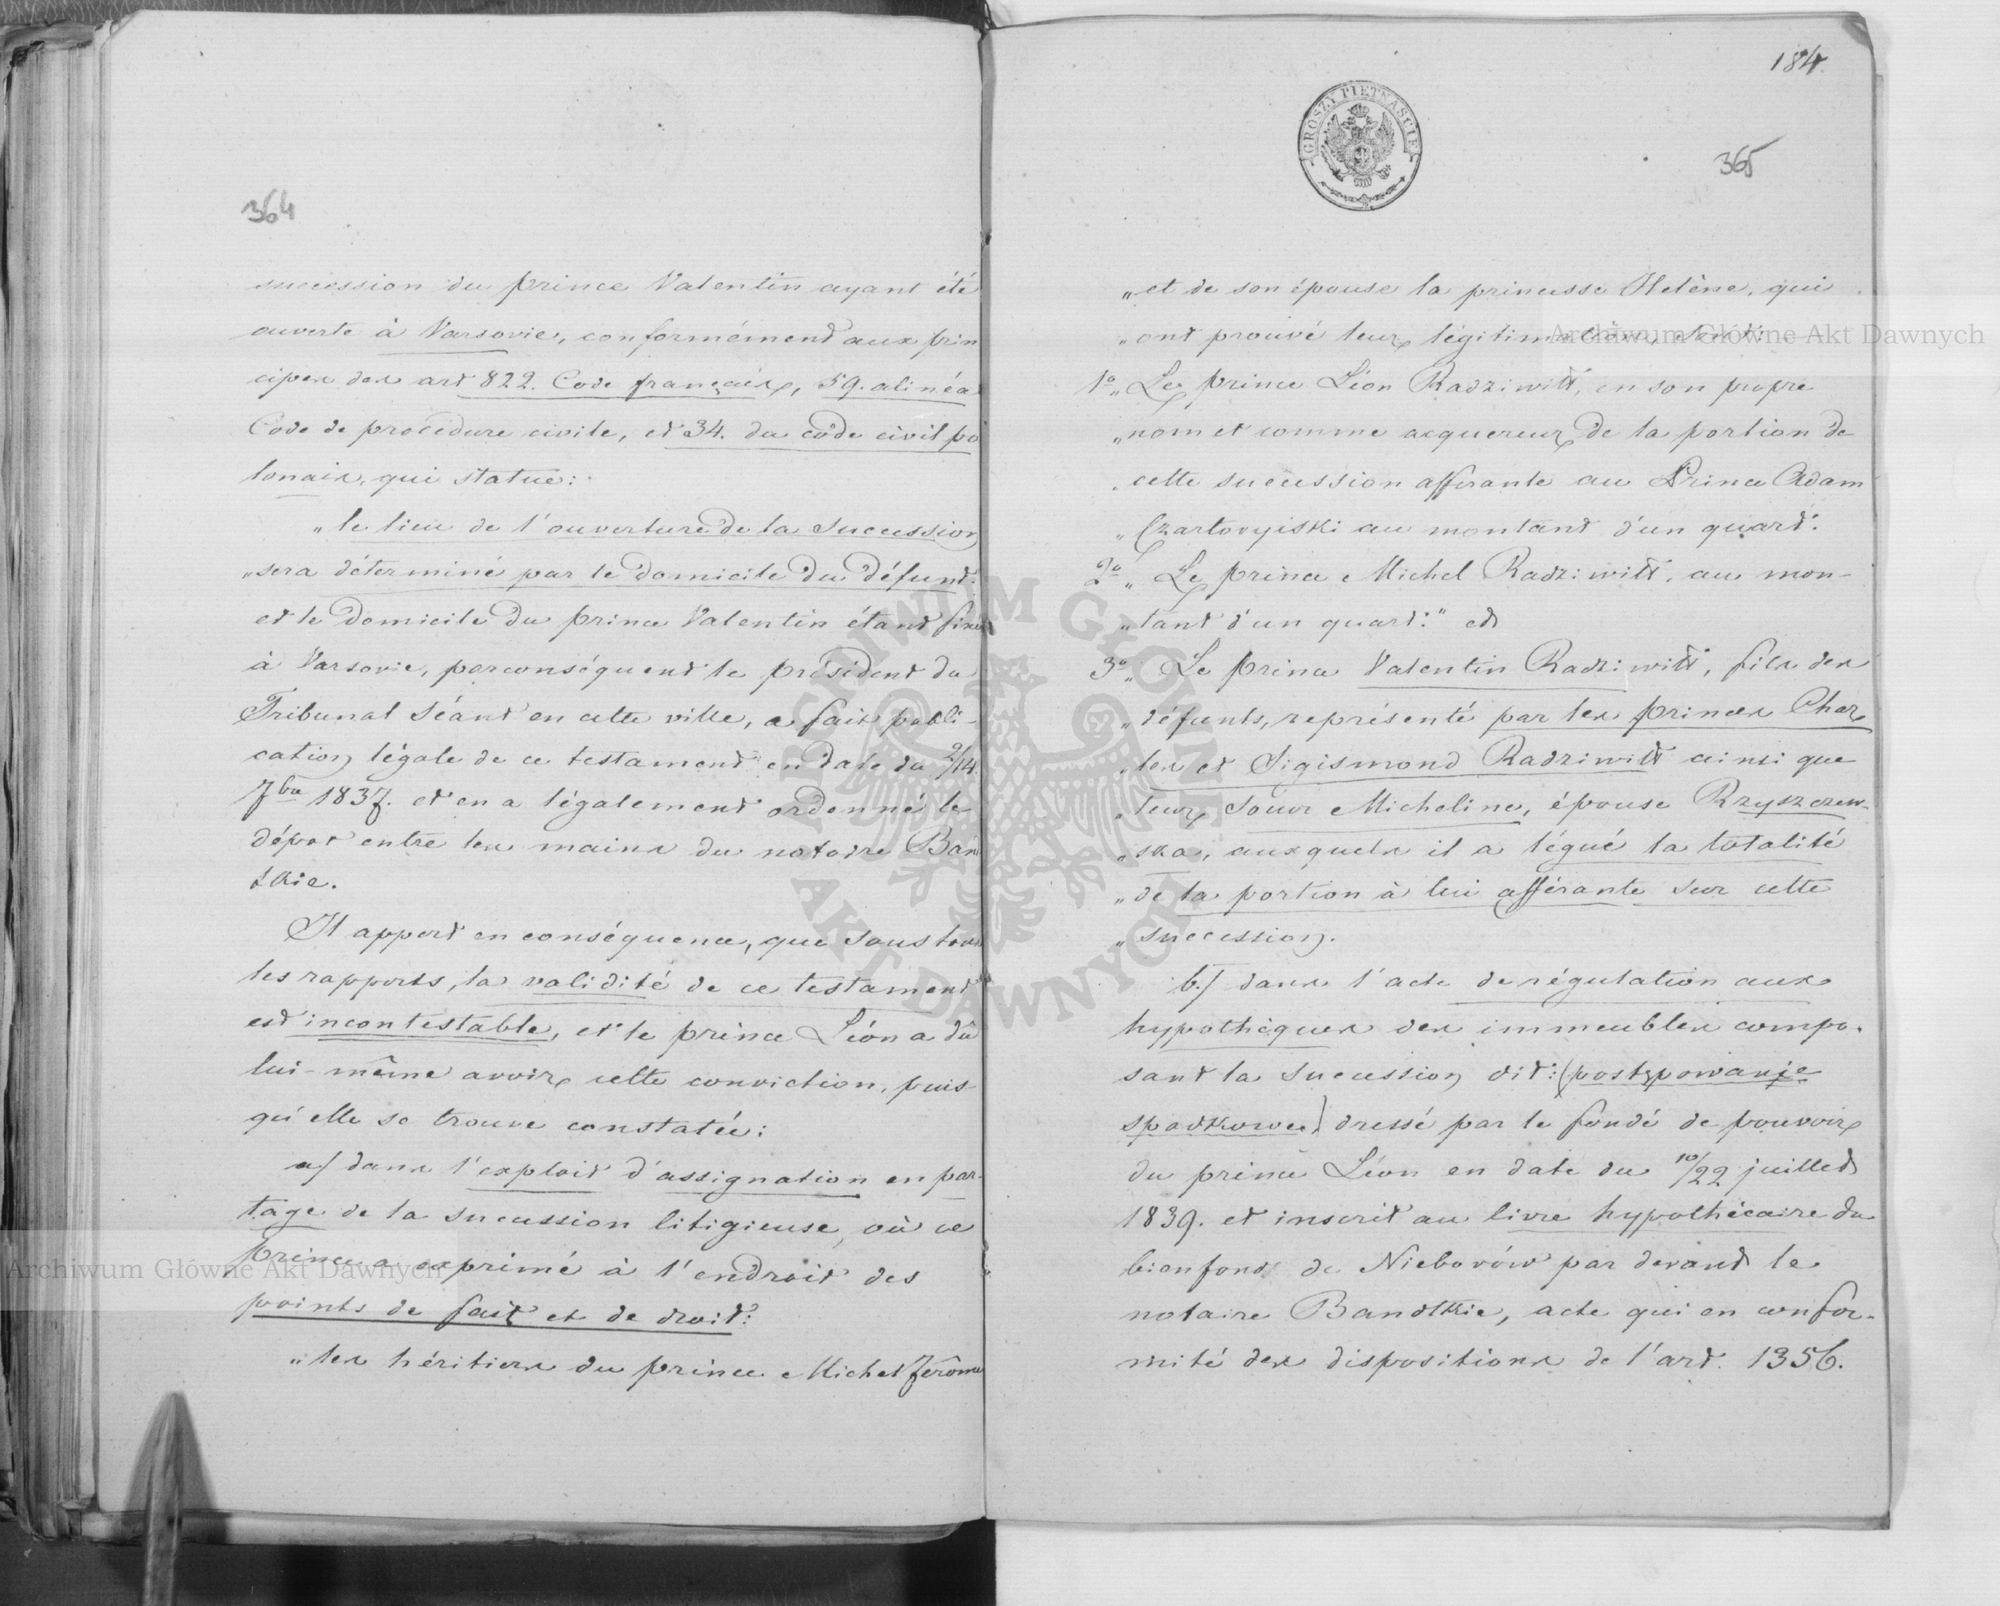 364
succession du prince Valentin ayant été
ouverte à Varsovie, conformément aux prin
cipes des art 822. Code français, 59. alinéa
Code de procédure civile, et 34. du code civil po
lonais, qui statue:
„le lieu de l'ouverture de la Succession
„sera déterminé par le domicile du défunt.
et le domicile du prince Valentin étant fixé
à Varsovie, parconséquent le président du
Tribunal Séant en cette ville, a fait publi-
cation légale de ce testament en date du 2/14
7bre 1837. et en a légalement ordonné le
dépot entre les mains du notaire Ban
tkie.
Il appert en conséquence, que sous tous
les rapports, la validité de ce testament
est incontestable, et le prince Léon a dû
lui-même avoir cette conviction, puis-
qu'elle se trouve constatée:
a/ dans l'exploit d'assignation en par-
tage de la succession litigieuse, où ce
prince a exprimé à l'endroit des
points de fait et de droit:
„les héritiers du prince Michel Jérôme
184.
GROSZY PIĘTNAŚCIE
365
„et de son épouse la princesse Helène, qui
„ont prouvé leur légitimation, sont:
1° „Le prince Léon Radziwiłł, en son propre
„nom et comme acquereur de la portion de
„cette succession afférante au Prince Adam
„Czartoryiski au montant d'un quart.
2° „Le prince Michel Radziwiłł, au mon-
„tant d'un quart:" et
3° „Le prince Valentin Radziwiłł, fils des
„défunts, représenté par les princes Char
„les et Sigismond Radziwiłł ainsi que
„leur soeur Micheline, épouse Rzyszczew-
„ska, auxquels il a légué la totalité
„de la portion à lui afférante sur cette
„succession.
b./ dans l'acte de régulation aux
hypothèques des immeubles compo-
sant la succession dit: (postępowanie
spadkowe) dressé par le fondé de pouvoir
du prince Léon en date du 10/22 juillet
1839. et inscrit au livre hypothécaire du
bienfonds de Nieborów par devant le
notaire Bandtkie, acte qui en confor-
mité des dispositions de l'art. 1356.
Archiwum Główne Akt Dawnych
Archiwum Główne Akt Dawnych
ARCHIWUM GŁÓWNE
AKT DAWNYCH